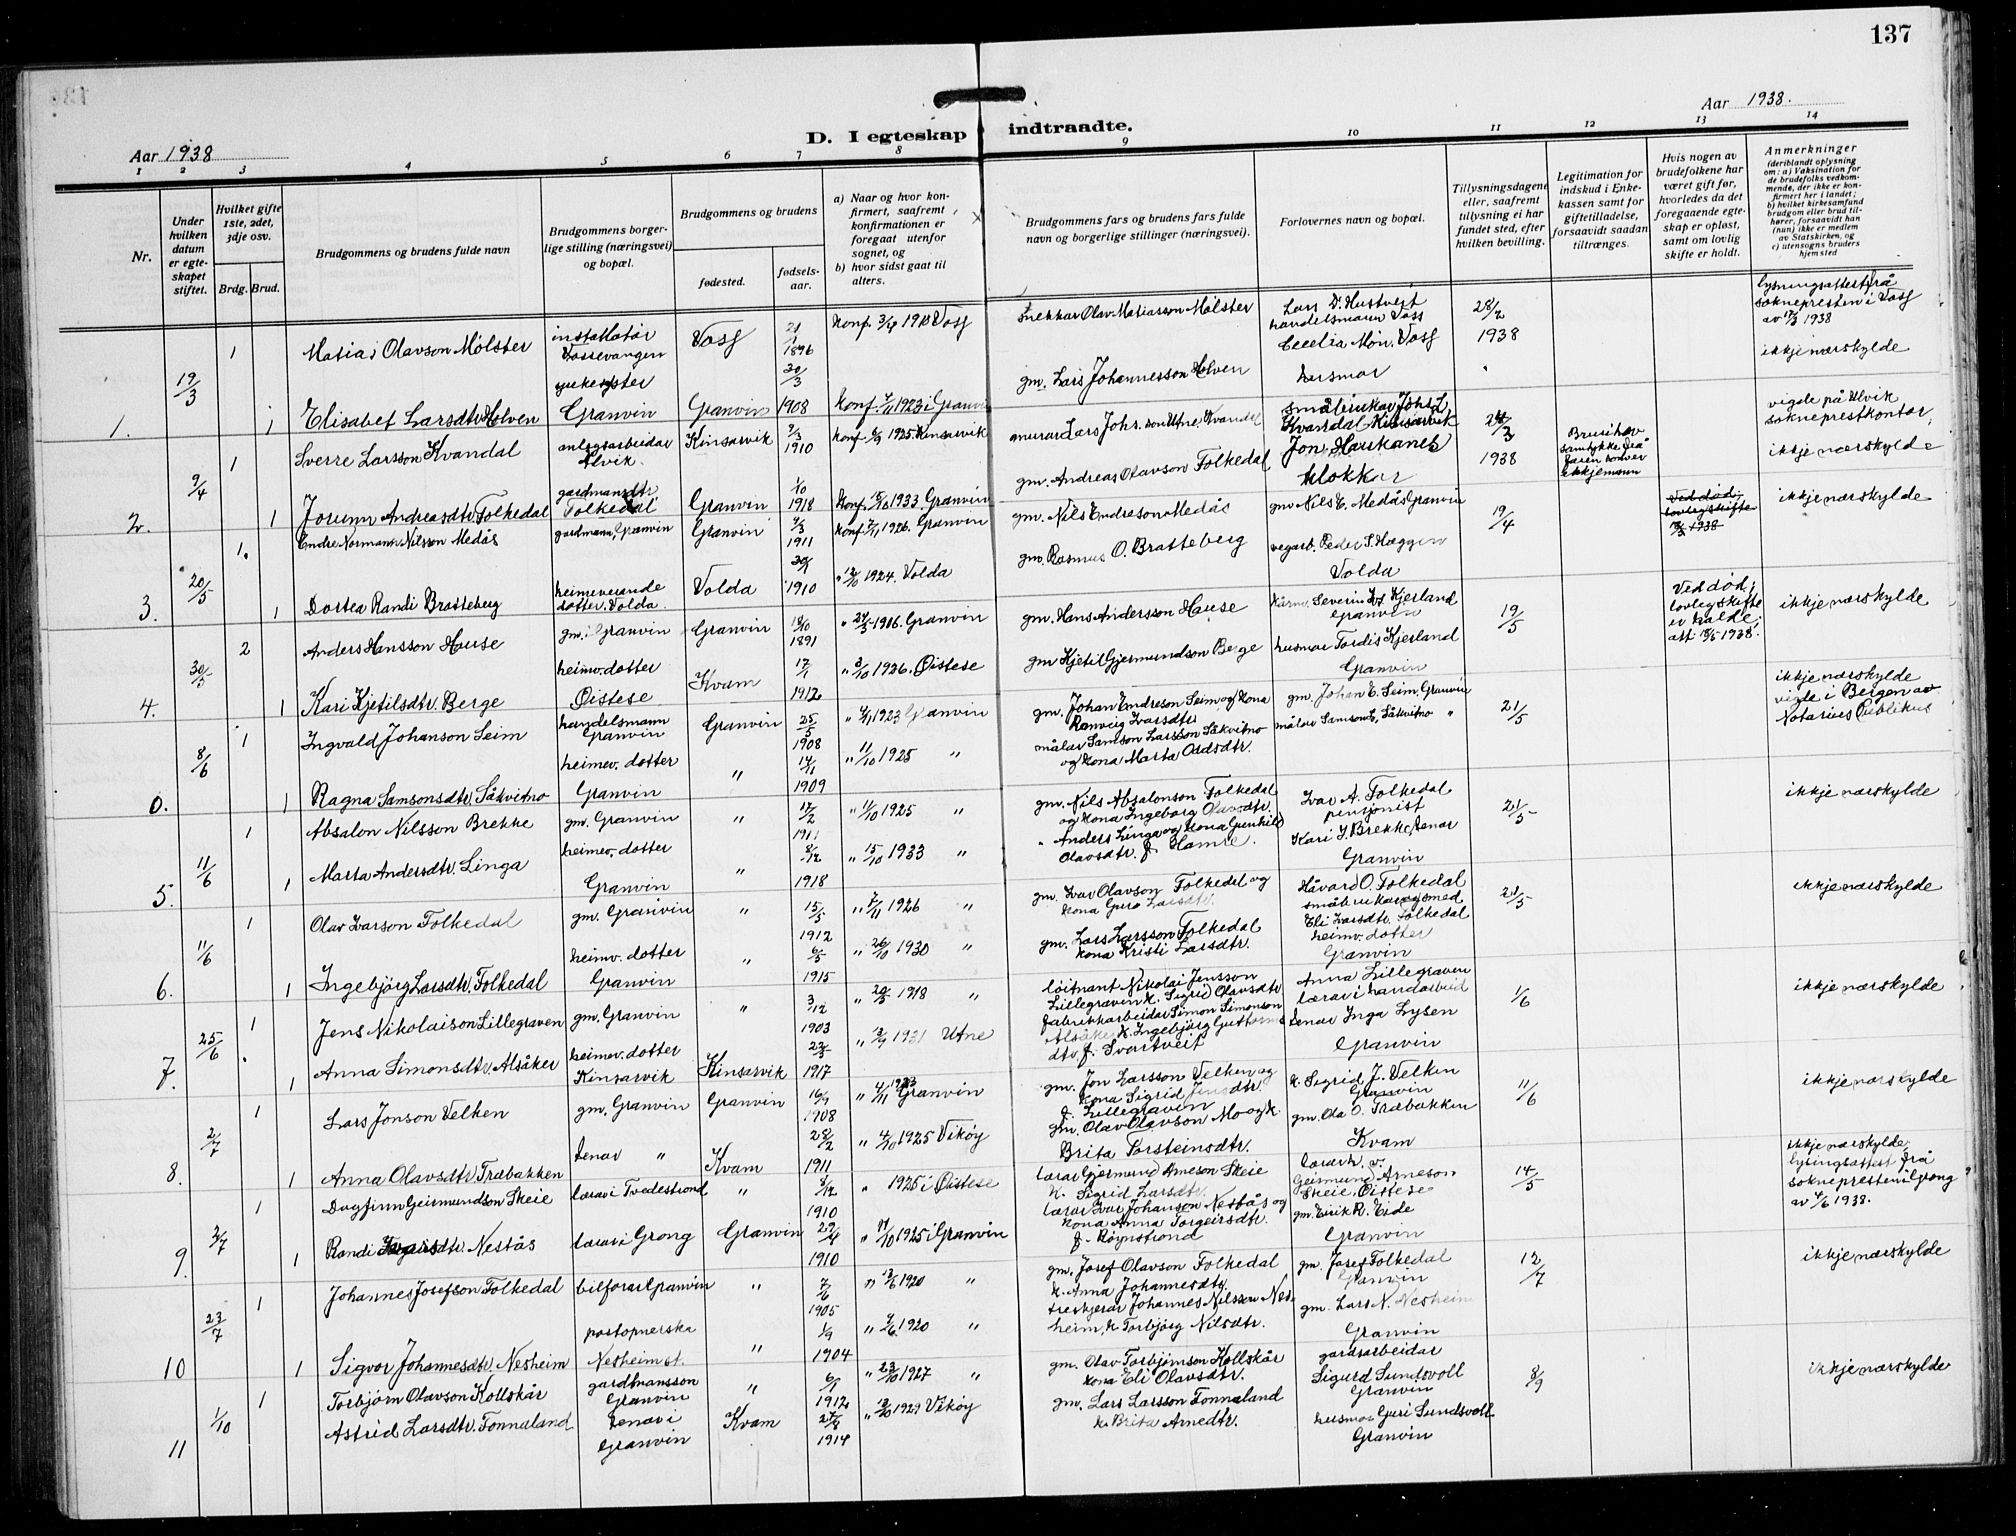 137
Aar 1938
D. I egteskap indtraadte.
Aar 1938.
1 2 3 4 5 6 7 8 9 10 11 12 13 14
Nr.
Under hvilken datum er egteskapet stiftet.
Hvilket gifte 1ste, 2det, 3dje osv.
Brdg. Brud.
Brudgommens og brudens fulde navn
Brudgommens borgerlige stilling (næringsvei) og bopæl.
Brudgommens og brudens
fødested.
fødselsaar.
a) Naar og hvor konfirmert, saafremt konfirmationen er foregaat utenfor sognet, og
b) hvor sidst gaat til alters.
Brudgommens fars og brudens fars fulde navn og borgerlige stillinger (næringsvei).
Forlovernes navn og bopæl.
Tillysningsdagene eller, saafremt tillysning ei har fundet sted, efter hvilken bevilling.
Legitimation for indskud i Enkekassen samt for giftetilladelse, forsaavidt saadan tiltrænges.
Hvis nogen av brudefolkene har været gift før, hvorledes da det foregaaende egteskap er opløst, samt om lovlig skifte er holdt.
Anmerkninger
(deriblandt oplysning om: a) Vaksination for de brudefolks vedkommende, der ikke er konfirmert her i landet; b) hvilket kirkesamfund brudgom eller brud tilhører, forsaavidt han (hun) ikke er medlem av Statskirken, og c) utensogns bruders hjemsted
1. 19/3 1 Matias Olavson Mølster installatør Vossevangen Voss 21/1 1896 Konf. 3/4 1910 Voss snekkar Olav Matiasson Mølster Lars D. Hustveit handelsmann Voss 28/2 1938 lysingsattest frå soknepresten i Voss av 17/3 1938
1 Elisabet Larsdtr. Holven Granvin Granvin 20/3 1908 Konf. 1923 i Granvin gm. Lars Johannesson Holven Cecelia Møn, Voss husmor ikkje nærskylde
2. 9/4 1 Sverre Larsson Kvandal anlegsarbeidar Ålvik Kinsarvik 9/3 1910 Konf. 1925 Kinsarvik murar Lars Johs.son Utne, Kvandal småbrukar Johs. L. Kvandal Kinsarvik 24/3 1938 vigde på Ulvik sokneprestkontor, ikkje nærskylde
1 Jorunn Andreasdtr. Folkedal gardmansdtr. Folkedal Granvin 1/10 1918 Konf. 15/10 1933 Granvin gm. Andreas Olavson Folkedal Jon Haukanes klokkar
3. 20/5 1. Endre Normann Nilsson Medås gardmann, Granvin Granvin 9/3 1911 Konf. 7/11 1926. Granvin gm. Nils Endreson Medås gm. Nils E. Medås Granvin 19/4 Ved død, lovleg skifte 1938 ikkje nærskylde
1 Dortea Randi Bratteberg heimeverande dotter. Volda Volda 1910 " 12/10 1924. Volda gm. Rasmus O. Bratteberg vegarb. Peder S. Hæggen Volda
4. 30/5 2 Anders Hansson Hause gm. i Granvin Granvin 18/10 1891 " 1916. Granvin gm. Hans Andersson Hause Severin Kjerland Granvin 19/5 Ved død; lovleg skifte er halde, att. 18/5 1938. ikkje nærskylde
1 Kari Kjetilsdtr. Berge heimev. dotter Øistese Kvam 17/1 1912 " 3/10 1926. Øistese gm. Kjetil Gjermundson Berge husmor Tordis Kjerland Granvin
0. 8/6 1 Ingvald Johanson Seim handelsmann Granvin Granvin 25/5 1908 " 1923 Granvin gm. Johan Endreson Seim og kona Ranveig Ivarsdtr. gm. Johan E. Seim, Granvin 21/5 ikkje nærskylde vigde i Bergen av Notarius Publikus
1 Ragna Samsonsdtr. Såkvitno heimev. dotter Granvin " 14/11 1909 " 11/10 1925 " målar Samson Larsson Såkvitno og kona Marta Oddsdtr. målar Samson L. Såkvitno "
5. 11/6 1 Absalon Nilsson Brekke gm. Granvin " 17/2 1911 " 11/10 1925 " gm. Nils Absalonson Folkedal og kona Ingeborg Olavsdtr. Ivar A. Folkedal pensjonist 21/5 ikkje nærskylde
1 Marta Andersdtr. Linga heimev. dotter Granvin " 8/12 1918 " 15/10 1933 " " Anders Linga og kona Gunhild Olavsdtr. f. Hamre. Kari I. Brekke, tenar Granvin
6. 11/6 1 Olav Ivarson Folkedal gm. Granvin " 15/5 1912 " 7/11 1926 " gm. Ivar Olavson Folkedal og kona Guro Larsdtr. Håvard O. Folkedal småbrukar og smed 21/5 ikkje nærskylde
1 Ingebjørg Larsdtr. Folkedal heimev. dotter Granvin " 6/5 1915 " 26/10 1930 " gm. Lars Larsson Folkedal kona Kristi Larsdtr. Eli Ivarsdtr. Folkedal heimv. dotter Granvin
7. 25/6 1 Jens Nikolaison Lillegraven gm. Granvin " 3/12 1903 " 1918 " løitnant Nikolai Jensson Lillegraven k. Sigrid Olavsdtr Anna Lillegraven lærar i handarbeid 1/6 ikkje nærskylde
1 Anna Simonsdtr. Alsåker heimev. dotter Kinsarvik Kinsarvik 1917 " 1931 Utne fabrikkarbeidar Simon Simonson Alsåker k. Ingebjørg Guttormsdtr. f. Svartveit tenar Inga Lysen Granvin
8. 2/7 1 Lars Jonson Velken gm. Granvin Granvin 1908 " 4/11 1923 Granvin gm. Jon Larsson Velken og kona Sigrid Jensdtr. f. Lillegraven k. Sigrid J. Velken Granvin 11/6 ikkje nærskylde
1 Anna Olavsdtr. Træbakken tenar " Kvam 28/2 1911 " 4/10 1925 Vikøy gm. Olav Olavson Mo og k. Brita Torsteinsdtr. gm. Ola O. Træbakken Kvam
9. 3/7 1 Dagfinn Geirmundson Skeie lærar i Tvedestrand " 8/12 1910 " 1925 i Øistese lærar Gjermund Arneson Skeie k. Sigrid Larsdtr. Geirmund Arneson Skeie, Øistese 14/5 ikkje nærskylde. lysingsattest frå soknepresten i Grong av 4/6 1938.
1 Randi Ivarsdtr. Nestås lærar i Grong Granvin 29/4 1910 " 11/10 1925 i Granvin lærar Ivar Johanson Nestås og kona Anna Torgeirsdtr. f. Røynstrand gm. Eirik R. Eide Granvin
10 23/7 1 Johannes Josefson Folkedal bilførar Granvin " 7/6 1905 " 1920 " gm. Josef Olavson Folkedal k. Anna Johannesdtr. gm. Josef Folkedal Granvin 12/7 ikkje nærskylde
1 Sigvor Johannesdtr. Nesheim postopnerska Nesheim st. " 1/9 1904 " 1920 " treskjerar Johannes Nilsson Nesheim, k. Torbjørg Nilsdtr. gm. Lars N. Nesheim Granvin
11 1/10 1 Torbjørn Olavson Kollskår gardmansson Granvin " 6/1 1912 " 23/10 1927 " gm. Olav Torbjørnson Kollskår kona Eli Olavsdtr. gardsarbeidar Sigurd Sundsvoll Granvin 8/9 ikkje nærskylde
Astrid Larsdtr. Tonnaland tenar i Granvin Kvam 1914 " 1929 Vikøy gm. Lars Larsson Tonnaland k. Brita Arnedtr. husmor Guri Sundsvoll Granvin